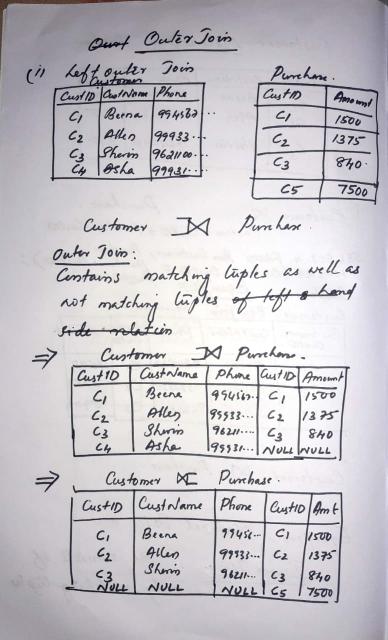 Outer Join
(i) Left outer Join
Customer
CustID CustName Phone
C1 Beena 994562...
C2 Allen 99933...
C3 Sherin 9621100...
C4 Asha 99931...
Purchase.
CustID Amount
C1 1500
C2 1375
C3 840.
C5 7500
Customer ⟕ Purchase.
Outer Join:
Contains matching tuples as well as
not matching tuples of left hand
side relation
⇒ Customer ⟕ Purchase.
CustID CustName Phone CustID Amount
C1 Beena 994562... C1 1500
C2 Allen 99933... C2 1375
C3 Sherin 96211... C3 840
C4 Asha 99931... NULL NULL
⇒ Customer ⟖ Purchase.
CustID CustName Phone CustID Amt
C1 Beena 99456... C1 1500
C2 Allen 99933... C2 1375
C3 Sherin 96211... C3 840
NULL NULL NULL C5 7500